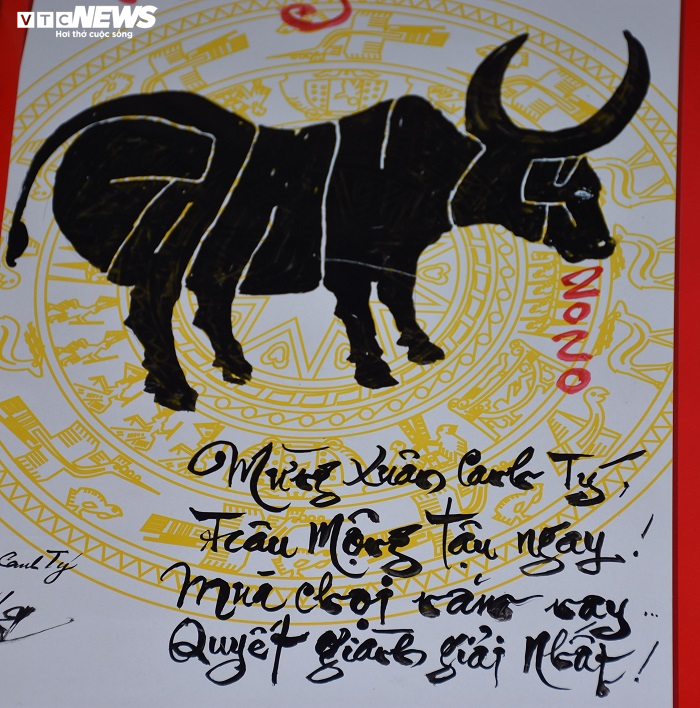 VTC NEWS
Hơi thở cuộc sống
2020
Mừng Xuân Canh Tý,
Trâu Mộng tậu ngay!
Múa chọi
Quyết giành giải Nhất!
Canh Tý